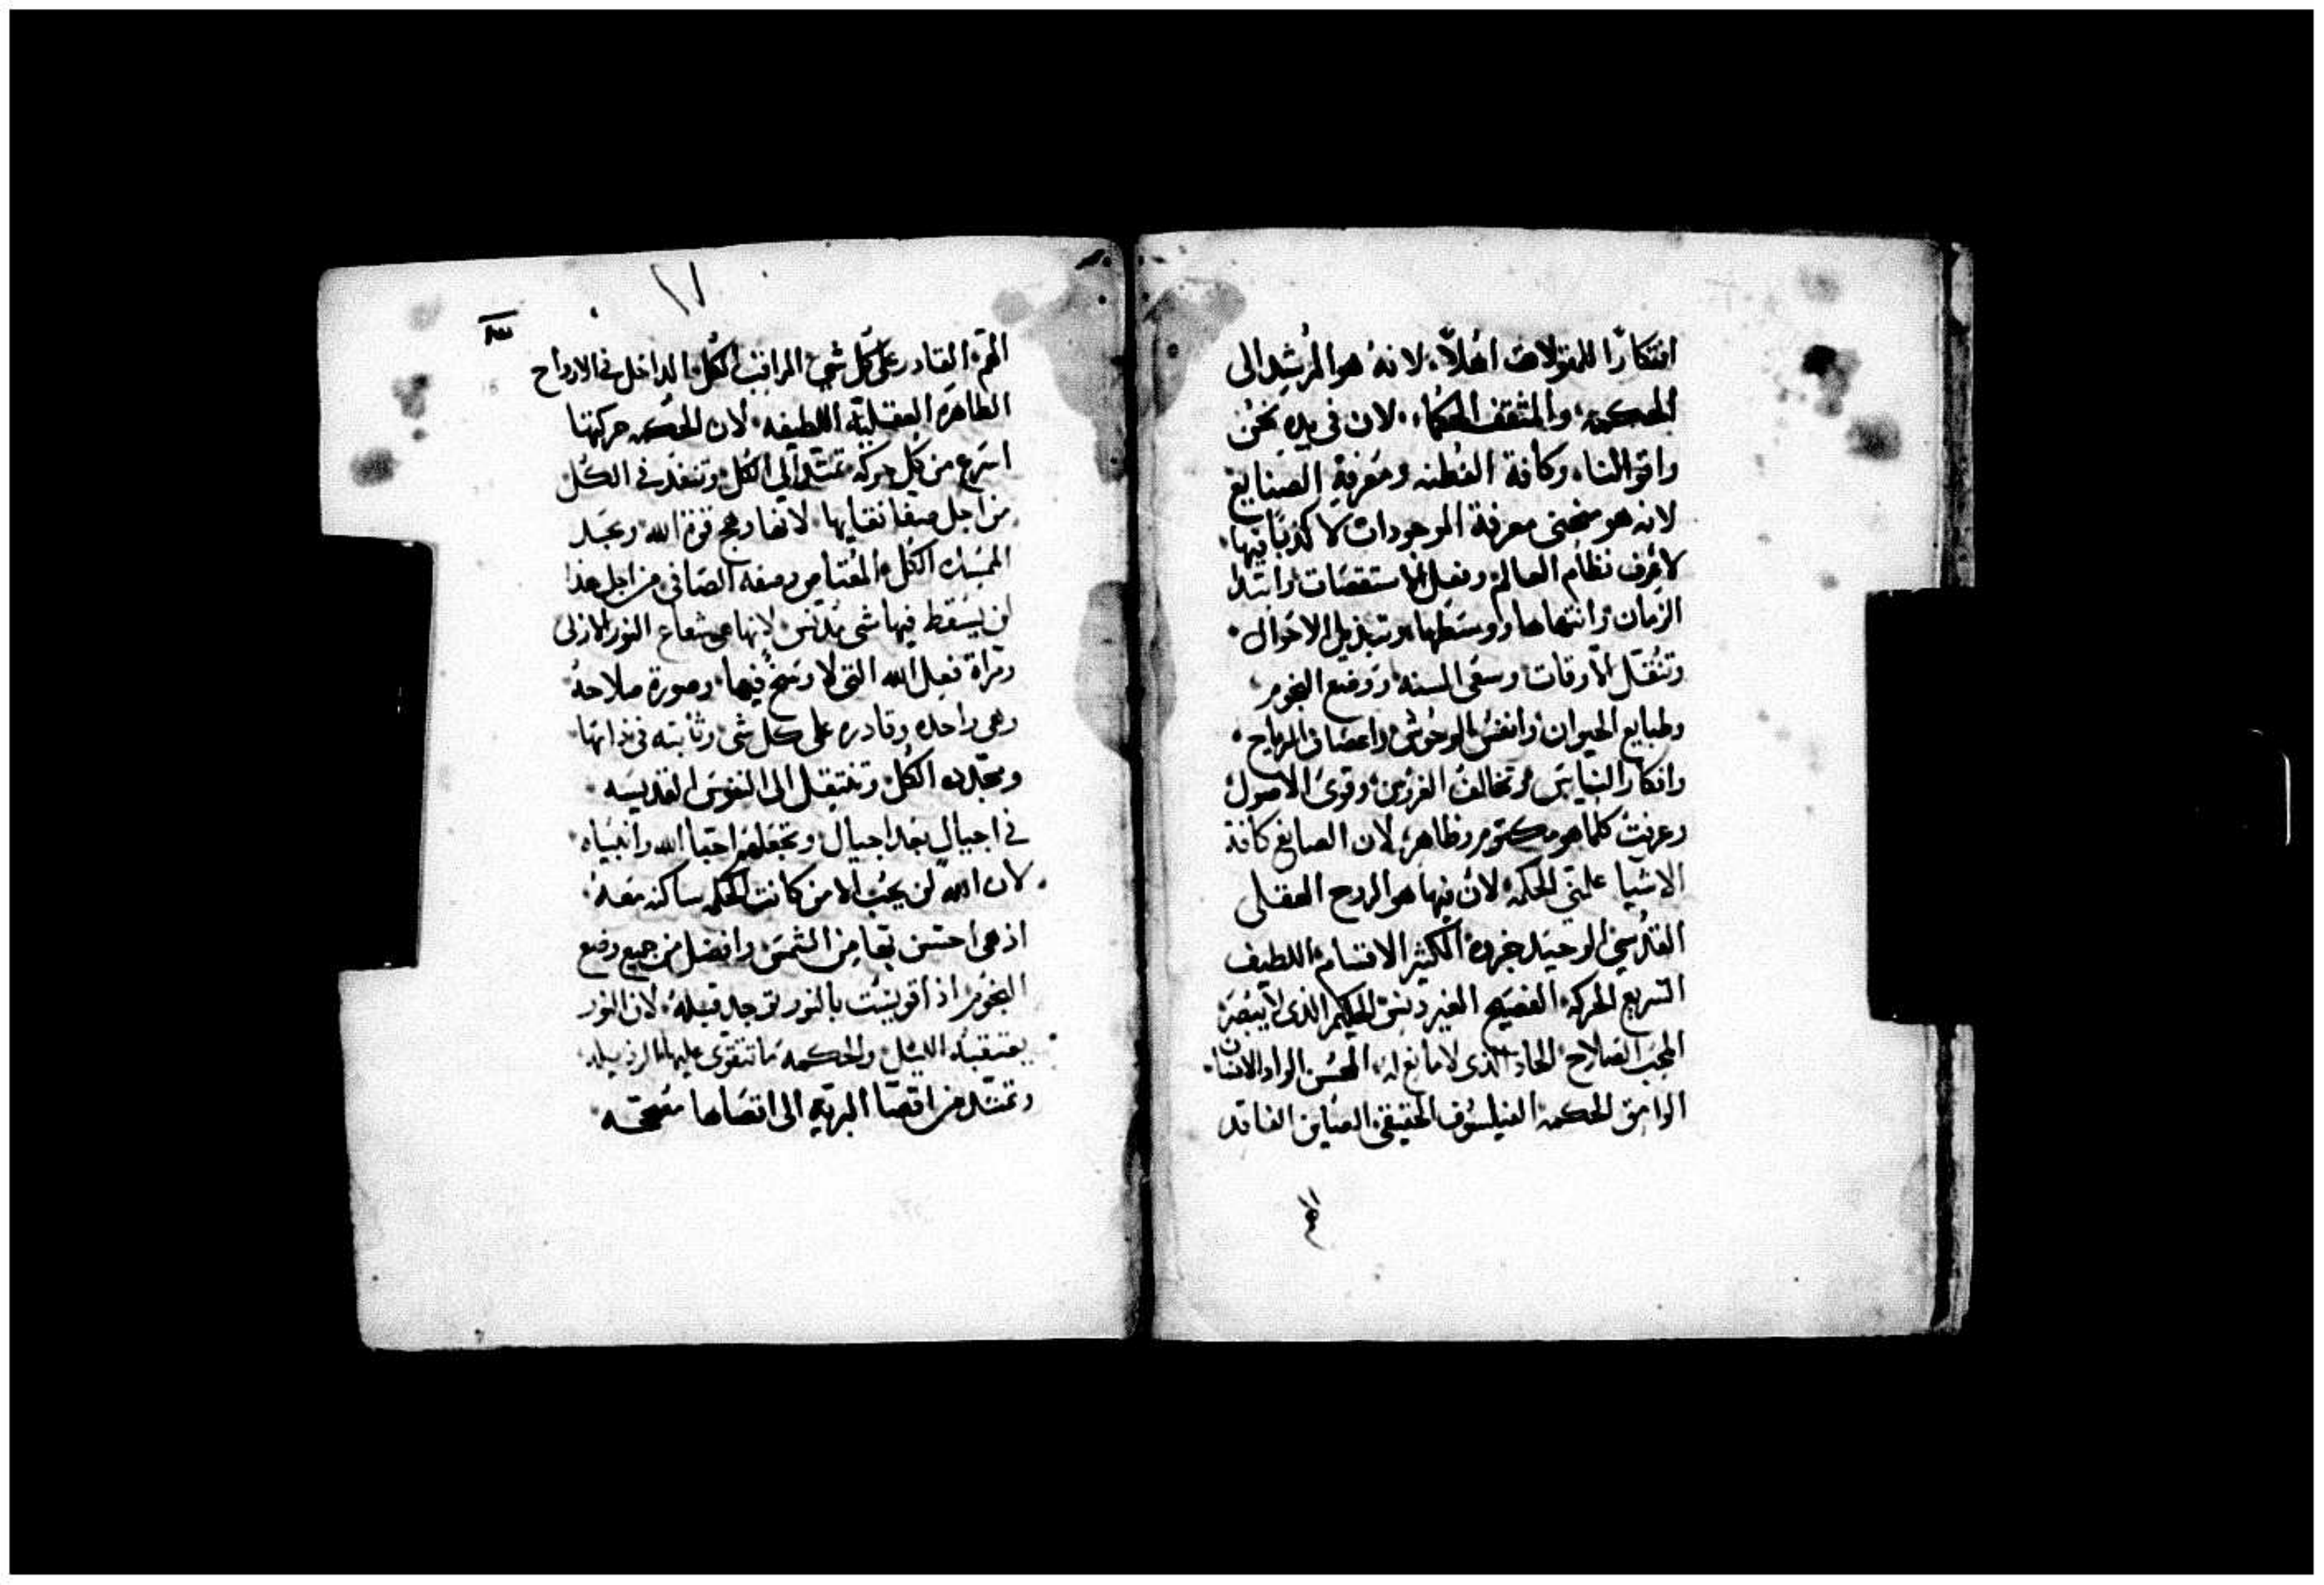 افتكارًا للمقولات اهلاً، لانه هو المرشد الى
الحكمه، والمثقف الحكماء، لان فى يده نحن
واقوالنا، وكافة الفطنه ومعرفة الصنايع
لانه هو منحنى معرفة الموجودات لا كذبًا فيها،
لاعرف نظام العالم وفعل الاستقصات وابتدا
الزمان وانتهاها ووسطها، وتبديل الاحوال،
وتنقل الاوقات وسعى السنه، ووضع النجوم
وطبايع الحيوان وانفس الوحوش واعصاف الرياح،
وافكار الناس وتخالف الغروس، وقوى الاصول
وعرفت كلما هو مكتوم وظاهر، لان الصانع كافة
الاشيا علمتنى الحكمه، لان فيها هو الروح العقلى
القدسى الوحيد الكثير الاقسام اللطيف
السريع الحركه، الفصيح الغير دنس الحكيم الذى لا
المحب الصلاح الحاد الذى لا مانع له، المحسن الواد الانسان،
الوامق الحكمه الفيلسوف الحقيقى الفاقد
الهم، القادر على كل شى المراقب الكل، الداخل فى الارواح
الطاهره العقليه اللطيفه، لان الحكمه حركتها
اسرع من كل حركه، تمتد الى الكل وتنفد فى الكل
من اجل صفا نقايها، لانها وهج قوة الله ومجد
الكل من اجل هذا
لن يسقط فيها شى مدنس، لانها هى شعاع النور الازلى
ومراة فعل الله التى لا وسخ فيها، وصورة صلاحه
وهى واحده وقادره على كل شى وثابته فى ذاتها،
ومجدده الكل وتنتقل الى النفوس القديسه
فى اجيال بعد اجيال وتجعلهم احبا الله وانبياه
لان الله لن يحب الا من كانت الحكمه ساكنه معه
اذ هى احسن بها من الشمس، وافضل من جميع وضع
النجوم، اذا قويست بالنور توجد قبله، لان النور
يعتقبه الليل، والحكمه ما تتقوى عليها الرذيله،
وتمتد من اقصا البريه الى اقصاها